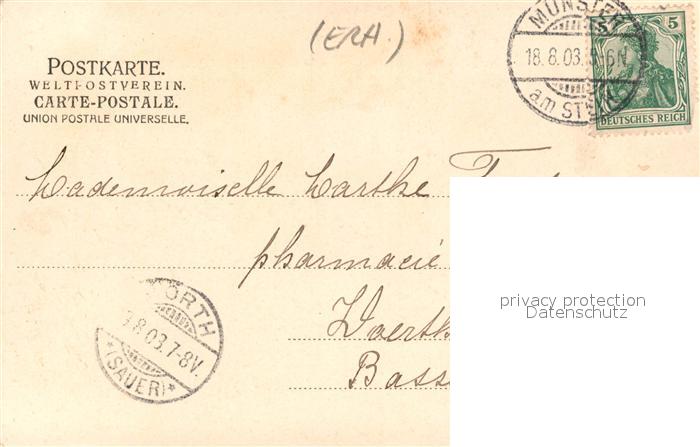 (ERH.)
MÜNSTER
18.8.03. 5-6N
am STEIN
5
DEUTSCHES REICH
POSTKARTE.
WELTPOSTVEREIN.
CARTE-POSTALE.
UNION POSTALE UNIVERSELLE.
Mademoiselle Marthe
pharmacie
privacy protection
Datenschutz
WÖRTH
8.03. 7-8V.
*(SAUER)*
Woerth
Bass